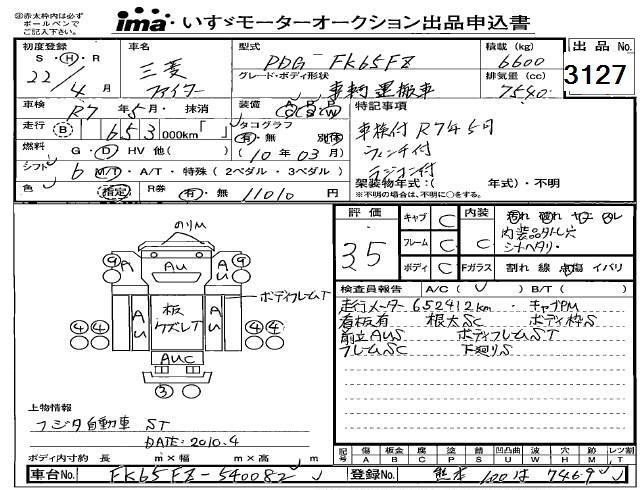 ※赤太枠内は必ず
ボールペンで
ご記入下さい。
ima・いすゞモーターオークション出品申込書
初度登録
S・H・R
22/4月
車名
三菱
ファイター
型式
PDG-FK65FZ
グレード・ボディ形状
車輌運搬車
積載(kg)
6600
排気量(cc)
7540
出品No.
3127
車検 R7年5月・抹消
装備 A P R
C S W
特記事項
車検付 R7年5月
ウィンチ付
ラジコン付
走行 B 653 000km「 」
タコグラフ
有・無 別体
(10年03月)
燃料 G・D HV 他( )
シフト 6 M/T・A/T・特殊(2ペダル・3ペダル)
色 指定 R券 有・無 11010円
架装物年式:( 年式)・不明
※不明の場合は、不明に○をする。
のりM
9 A Au Au 9
Au 板
ウズレT Au
ボディフレームT
4 4 4 4
AUC
3
評価
35
キャブ C
フレーム C
ボディ C
内装 C
汚れ 破れ ヤコゲ ダレ
内装品外し穴
シートヘタリ・
Fガラス 割れ 線 点傷 イバリ
検査員報告 A/C( ) B/T( )
走行メーター652412km・キャブPM
看板有 根太SC ボディ枠S
前立AUS ボディフレームST
フレームSC 下廻りS
上物情報
フジタ自動車 ST
DATE:2010.4
ボディ内寸約 長 m×幅 m×高 m
記号 傷 板金 腐 塗 錆 凹凸曲 波 穴 跡 レンズ割
A B C P S U W H M T
車台No. FK65FZ-540082
登録No. 熊本 100 は 746.9